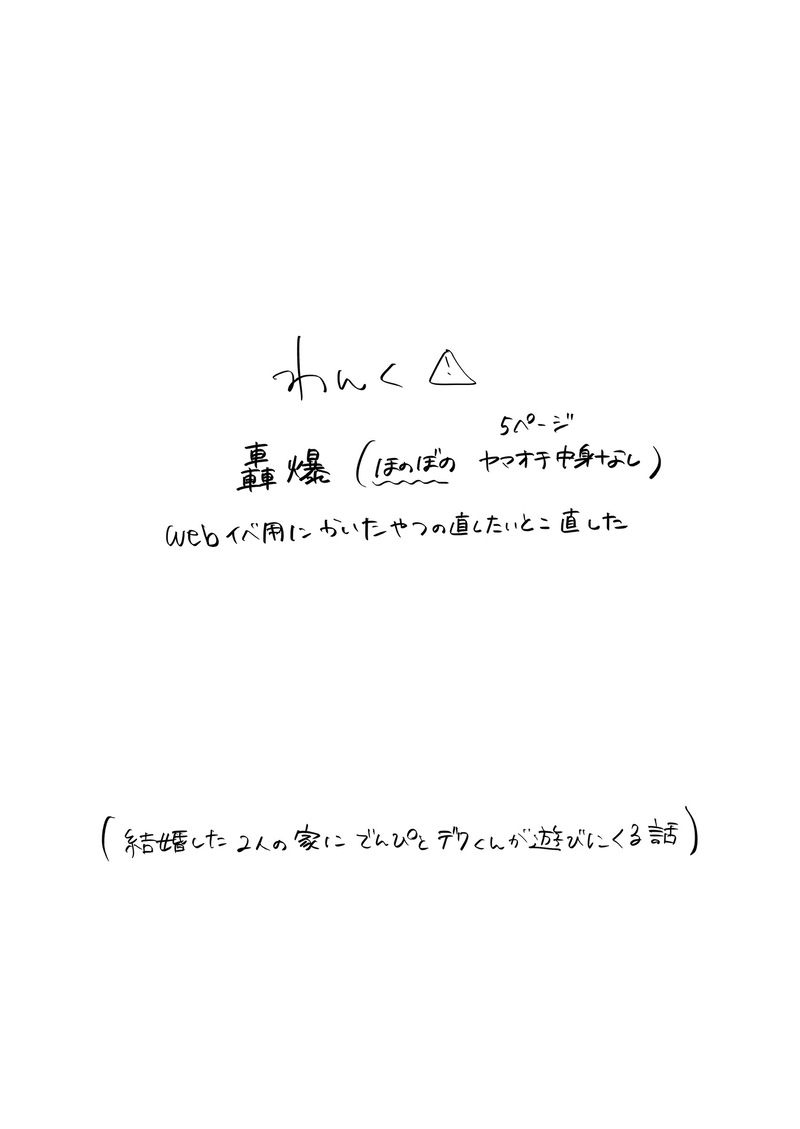 わんく⚠
5ページ
轟爆(ほのぼの ヤマオチ中身なし)
webイベ用にかいたやつの直したいとこ直した
(結婚した2人の家にでんぴとデクくんが遊びにくる話)